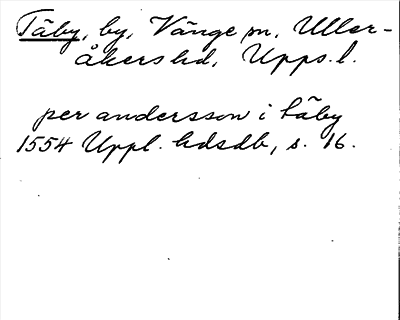 Täby, by, Vänge sn, Uller-
åkers hd, Upps. l.
per andersson i täby
1554 Uppl. hdsdb, s. 16.